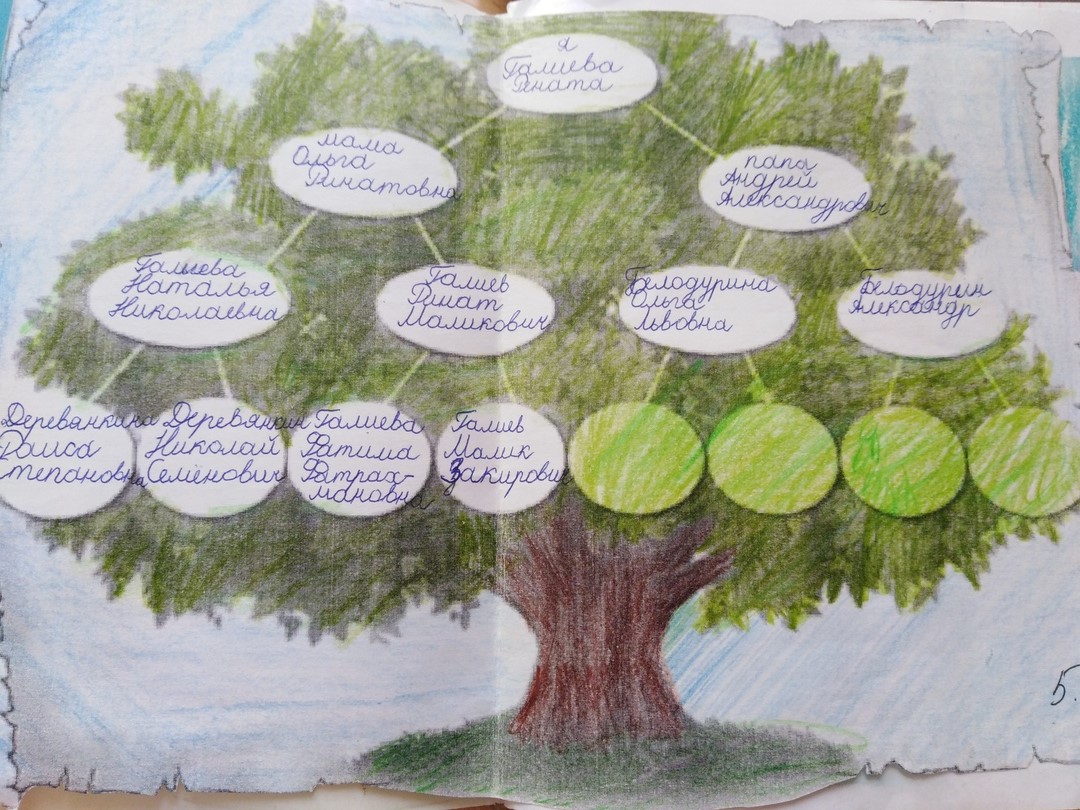 я
Галиева
Рената
мама
Ольга
Ринатовна
папа
Андрей
Александрович
Галиева
Наталья
Николаевна
Галиев
Ринат
Маликович
Белодурина
Ольга
Львовна
Белодурин
Александр
Деревянкина
Раиса
Степановна
Деревянкин
Николай
Семёнович
Галиева
Фатима
Фатрах-
мановна
Галиев
Малик
Закирович
5.